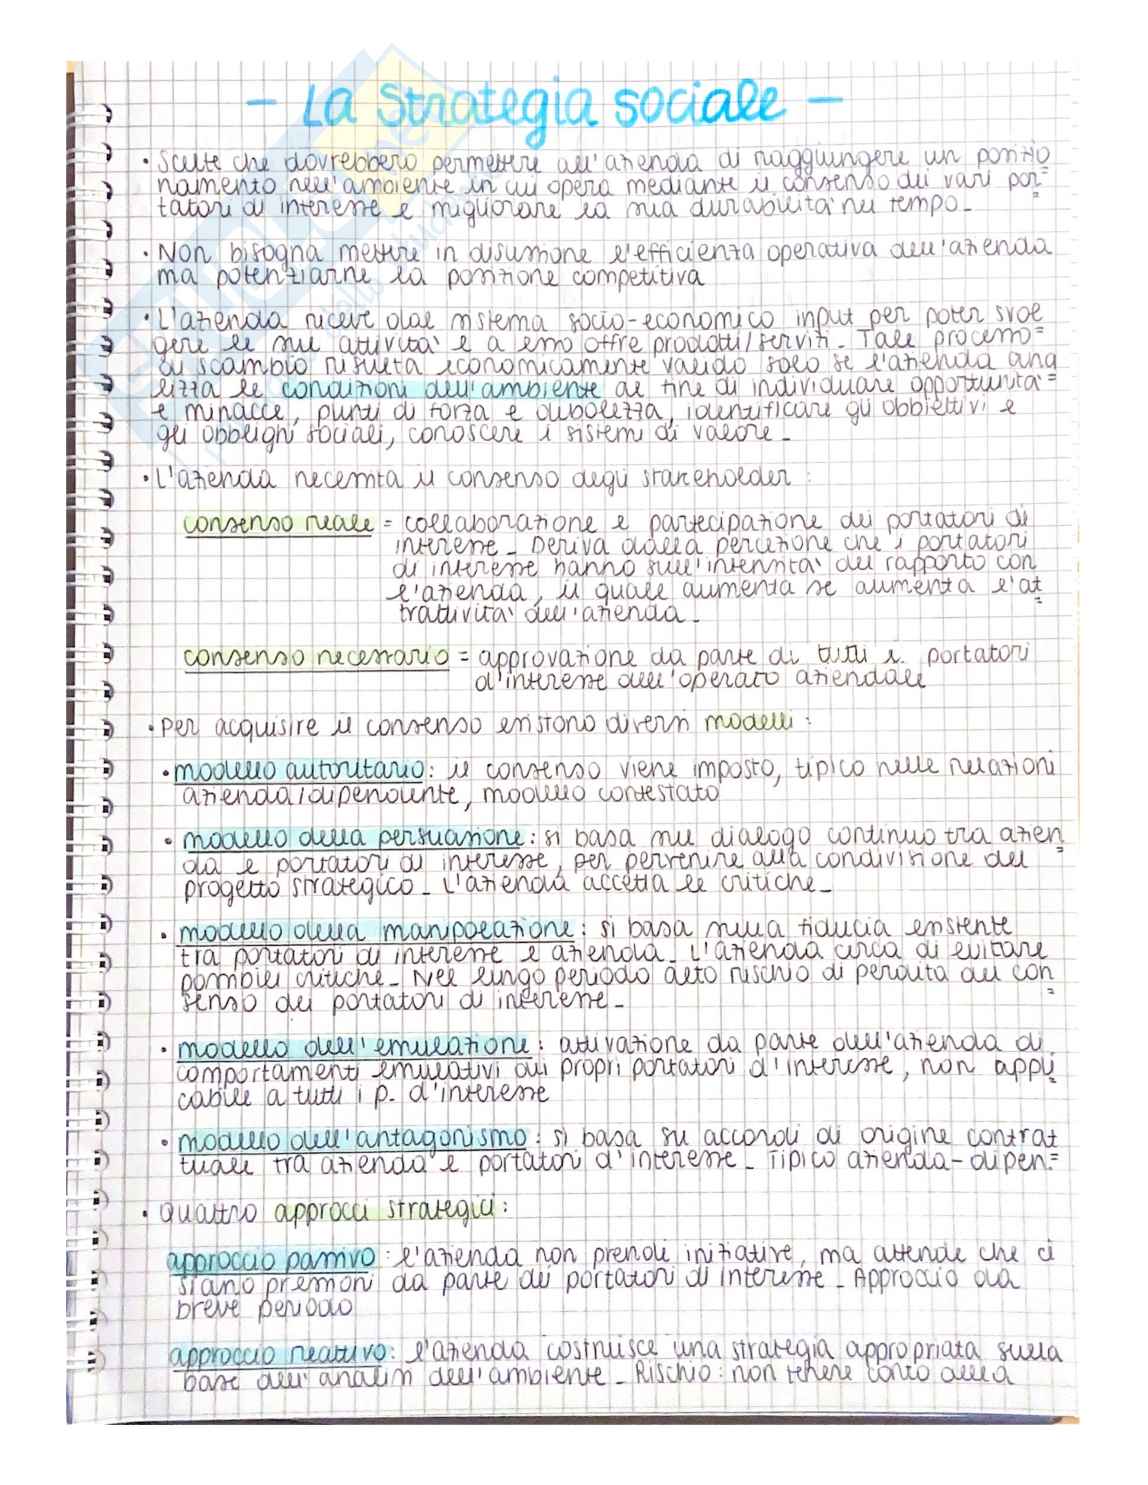 - La Strategia sociale -
• Scelte che dovrebbero permettere all'azienda di raggiungere un posizio
namento nell'ambiente in cui opera mediante il consenso dei vari por=
tatori di interesse e migliorare la sua durabilità nel tempo_
• Non bisogna mettere in discussione l'efficienza operativa dell'azienda
ma potenziarne la posizione competitiva
• L'azienda riceve dal sistema socio-economico input per poter svol
gere le sue attività e a esso offre prodotti/servizi_ Tale processo=
di scambio risulta economicamente valido solo se l'azienda ana
lizza le condizioni dell'ambiente al fine di individuare opportunità=
e minacce, punti di forza e debolezza, identificare gli obbiettivi e
gli obblighi sociali, conoscere i sistemi di valore_
• L'azienda necessita il consenso degli stakeholder:
consenso reale = collaborazione e partecipazione dei portatori di
interesse_ Deriva dalla percezione che i portatori
di interesse hanno sull'intensità del rapporto con
l'azienda, il quale aumenta se aumenta l'at
=
trattività dell'azienda_
consenso necessario = approvazione da parte di tutti i portatori
d'interesse dell'operato aziendale
• Per acquisire il consenso esistono diversi modelli:
• modello autoritario: il consenso viene imposto, tipico nelle relazioni
azienda/dipendente, modello contestato
• modello della persuasione: si basa sul dialogo continuo tra azien
=
da e portatori di interesse, per pervenire alla condivisione del
progetto strategico_ L'azienda accetta le critiche_
• modello della manipolazione: si basa sulla fiducia esistente
tra portatori di interesse e azienda_ L'azienda cerca di evitare
possibili critiche_ Nel lungo periodo alto rischio di perdita del con
=
senso dei portatori di interesse_
• modello dell'emulazione: attivazione da parte dell'azienda di
comportamenti emulativi dei propri portatori d'interesse, non appli
cabile a tutti i p. d'interesse
• modello dell'antagonismo: si basa su accordi di origine contrat
tuale tra azienda e portatori d'interesse_ Tipico azienda-dipen=
• Quattro approcci strategici:
approccio passivo: l'azienda non prende iniziative, ma attende che ci
siano pressioni da parte dei portatori di interesse_ Approccio da
breve periodo
approccio reattivo: l'azienda costruisce una strategia appropriata sulla
base dell'analisi dell'ambiente_ Rischio: non tenere conto della